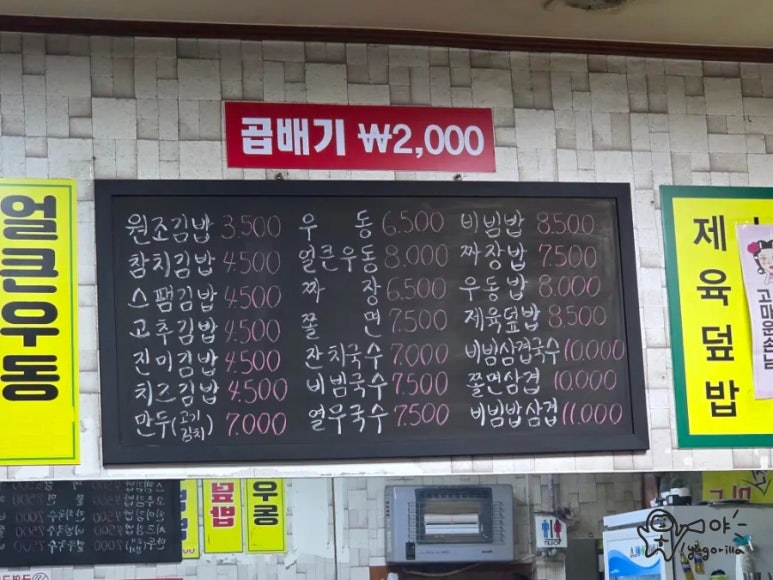 곱배기 ₩2,000
얼큰우동
원조김밥 3.500
참치김밥 4.500
스팸김밥 4.500
고추김밥 4.500
진미김밥 4.500
치즈김밥 4.500
만두(고기 김치) 7.000
우동 6.500
얼큰우동 8.000
짜장 6.500
쫄면 7.500
잔치국수 7.000
비빔국수 7.500
열무국수 7.500
비빔밥 8.500
짜장밥 7.500
우동밥 8.000
제육덮밥 8.500
비빔삼겹국수 10.000
쫄면삼겹 10.000
비빔밥삼겹 11.000
제육덮밥
고마운손
덮밥
우동
야
yagorilla